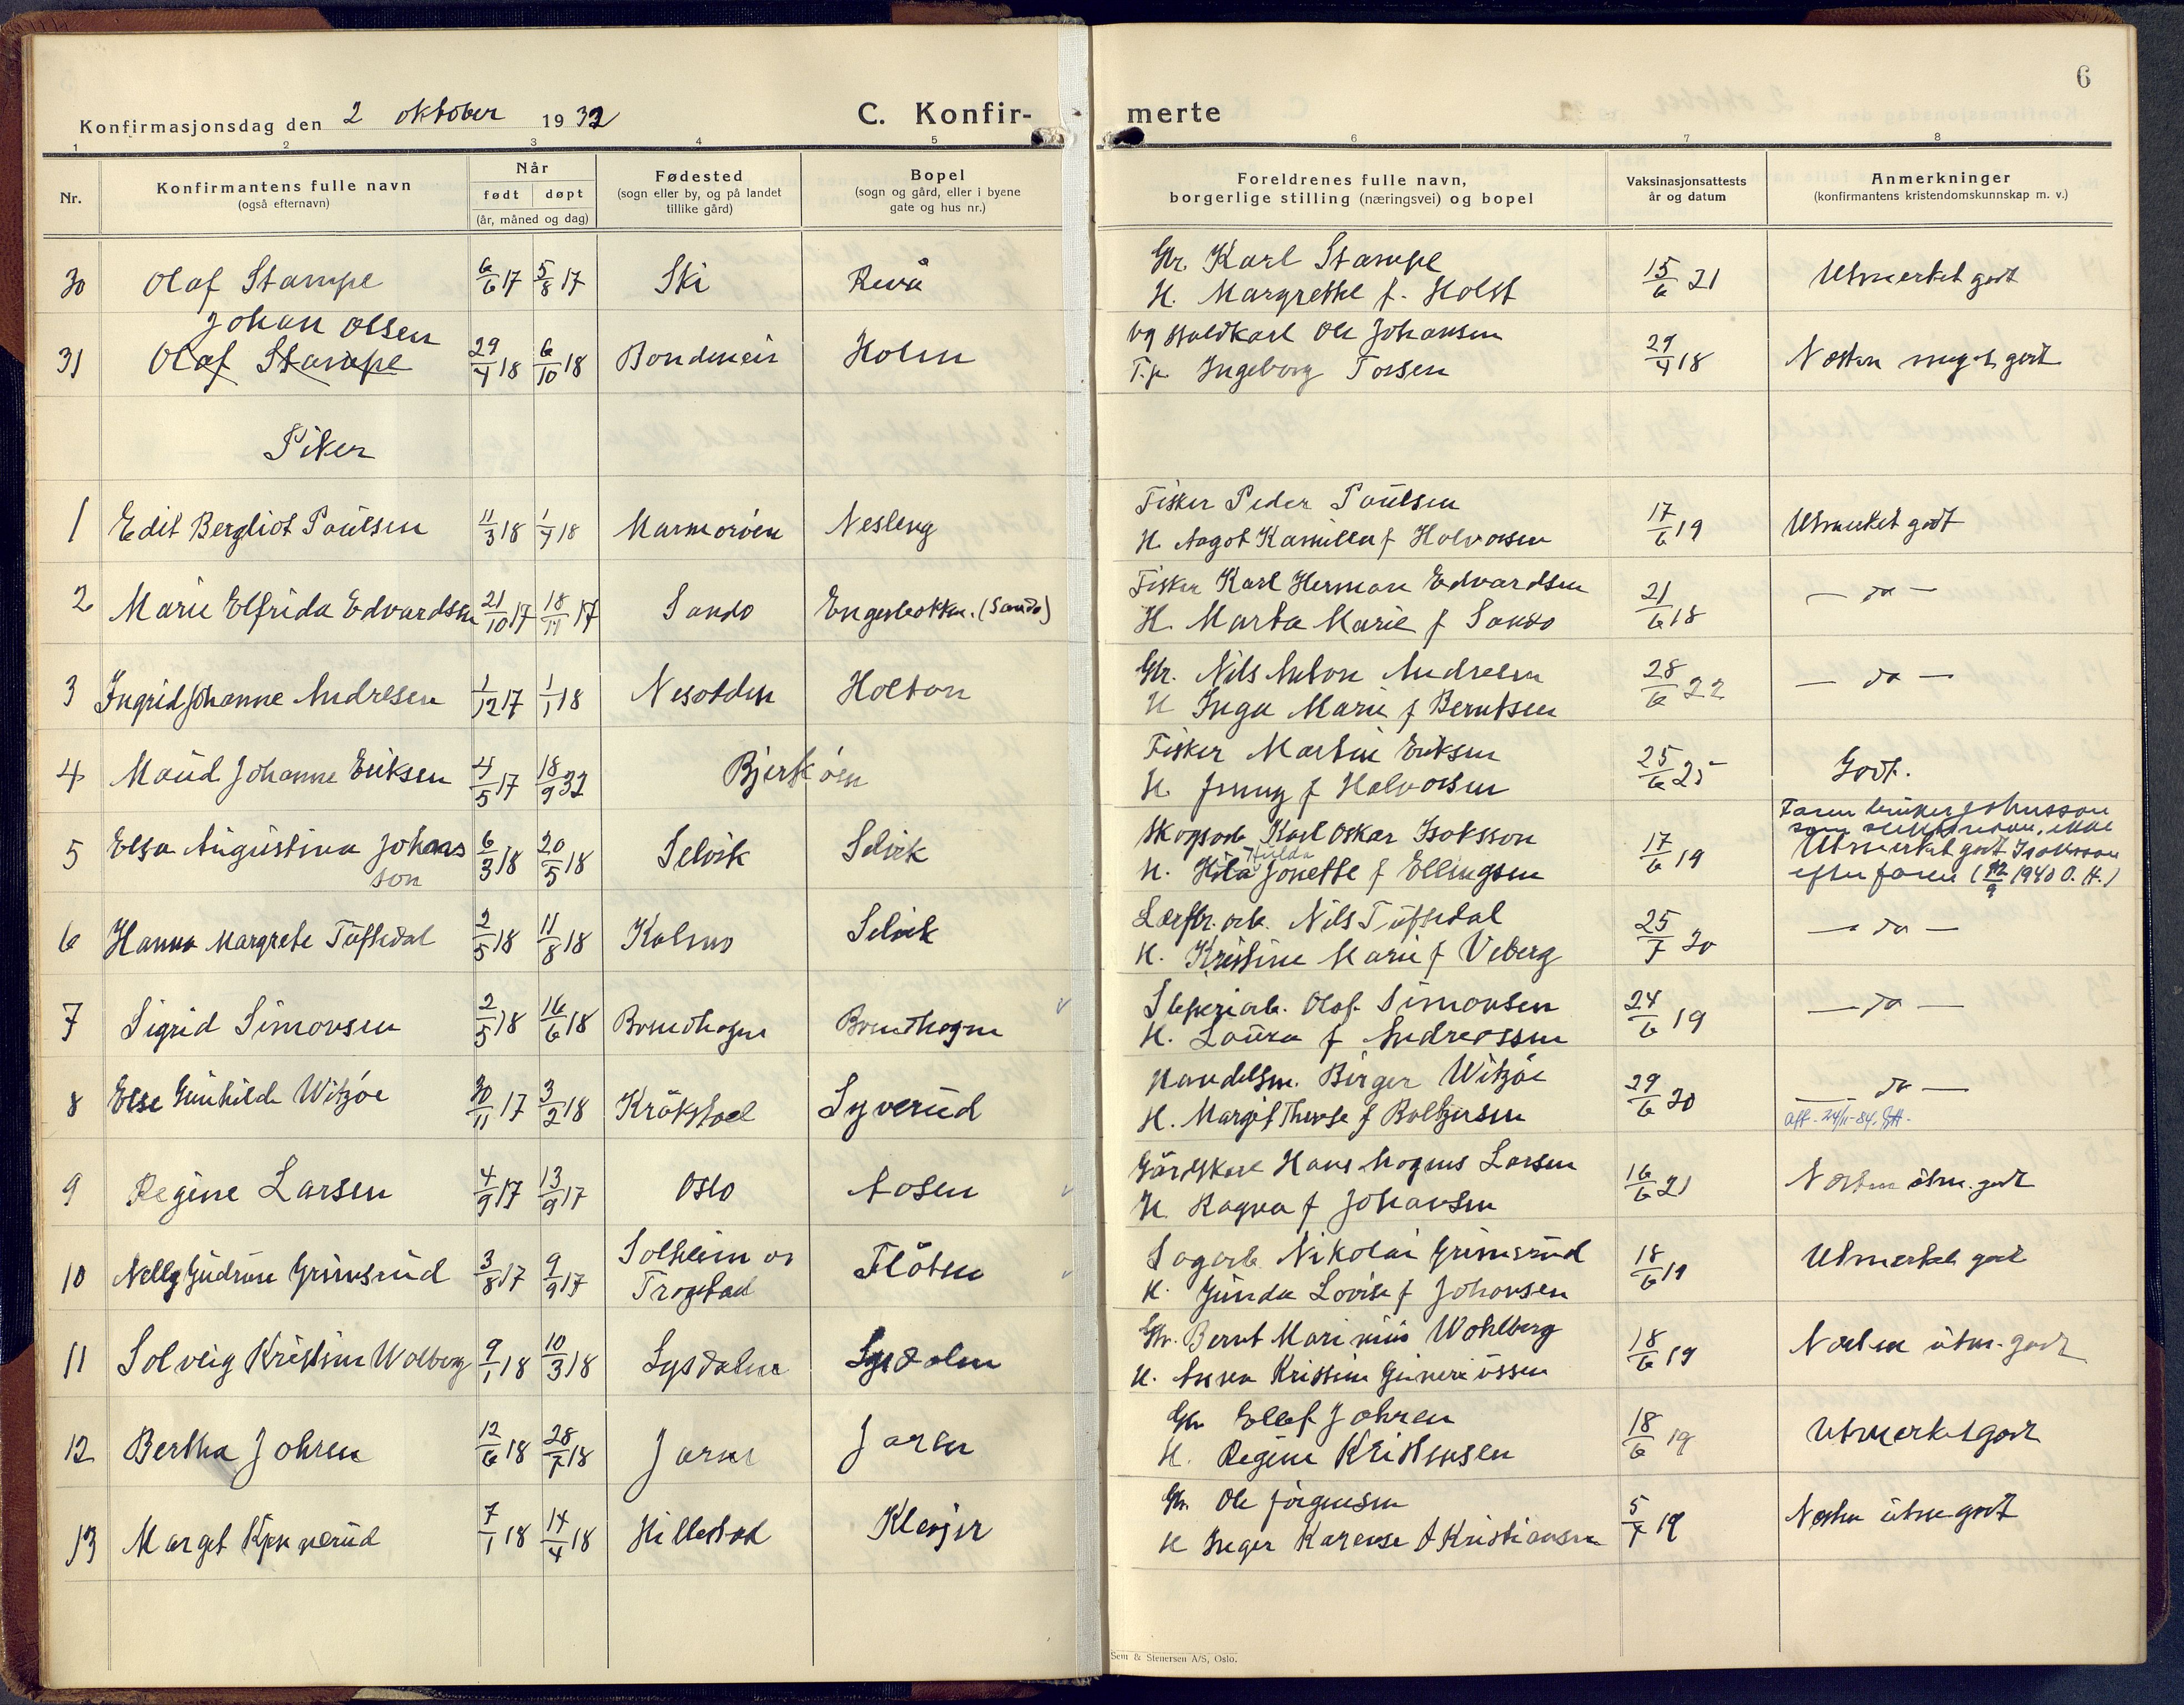 6
Konfirmasjonsdag den 2 oktober 1932
C. Konfir- merte
1 2 3 4 5 6 7 8
Nr.
Konfirmantens fulle navn
(også efternavn)
Når
født døpt
(år, måned og dag)
Fødested
(sogn eller by, og på landet
tillike gård)
Bopel
(sogn og gård, eller i byene
gate og hus nr.)
Foreldrenes fulle navn,
borgerlige stilling (næringsvei) og bopel
Vaksinasjonsattests
år og datum
Anmerkninger
(konfirmantens kristendomskunnskap m. v.)
30 Olaf Stampe 6/6 17 5/8 17 Ski Revå
Gbr. Karl Stampe
H. Margrethe f. Holst
15/6 21 Utmerket godt
Johan Olsen
31 Olaf Stampe 29/4 18 6/10 18 Holm
Ole Johansen
T.p. Ingeborg Torsen
29/4 18 Næsten meget godt
Piker
1 Edit Bergliot Paulsen 11/3 18 1/4 18 Marmorøen Nesleng
Fisker Peder Paulsen
H. Aagot Kamilla f Halvorsen
17/6 19 Utmerket godt
2 Marie Elfrida Edvardsen 21/10 17 18/11 17 Sando (Sando)
Fisker Karl Herman Edvardsen
H. Marta Marie f Sando
21/6 18 — do —
3 Ingrid Johanne Andresen 1/12 17 1/1 18 Nesodden Holtan
Gbr. Nils Anton Andresen
H Inga Marie f Berntsen
28/6 22 — do —
4 Maud Johanne Eriksen 4/5 17 18/9 32 Bjerkøen
Fisker Martin Eriksen
H. Jenny f Halvorsen
25/6 25 Godt.
5 Elsa Augustina Johans
son
6/3 18 20/5 18 Selvik Selvik
Skogsarb. Karl Oskar Isaksson
Hulda
H. Hila Jonette f Ellingsen
17/6 19
Faren bruker Johnsson
som ikke
Utmerket godt Isaksson
efter faren (12/9 1940 O. H.)
6 Hanna Margrete Tuftedal 2/5 18 11/8 18 Kolmo Selvik
Nils Tuftedal
H. Kristine Marie f Veberg
25/7 20 — do —
7 Sigrid Simonsen 2/5 18 16/6 18
Sliperiarb. Olaf Simonsen
H. Laura f Andreassen
24/6 19 — do —
8 Else Gunhilde Witzøe 30/11 17 3/2 18 Kråkstad Syverud
Handelsm. Birger Witzøe
H. Margit Therese f Baltzersen
29/6 20 — do —
Att. 24/11-84.
9 Regine Larsen 4/9 17 13/9 17 Oslo Aosen
Gårdskarl Hans Magnus Larsen
H. Ragna f Johansen
16/6 21 Næsten utm. godt
10 Nelly Gudrun Grimsrud 3/8 17 9/9 17 Solheim
Trøgstad
Fløten
Sagarb. Nikolai Grimsrud
H. Gunda Lovise f Johansen
18/6 19 Utmerket godt
11 Solveig Kristine Wolberg 9/1 18 10/3 18 Sysdalen Sysdalen
Gbr. Bernt Marinius Wohlberg
H. Anna Kristine Gunneriussen
18/6 19 Næsten utm. godt
12 Bertha Johren 12/6 18 28/7 18 Jaren Jaren
Gbr Ellef Johren
H. Regine Kristensen
18/6 19 Utmerket godt
13 Marget Kjennerud 7/1 18 14/4 18 Hillestad Klevjer
Gbr. Ole Jørgensen
H Inger Karense f Kristiansen
5/7 19 Næsten utm godt
Sem & Stenersen A/S, Oslo.